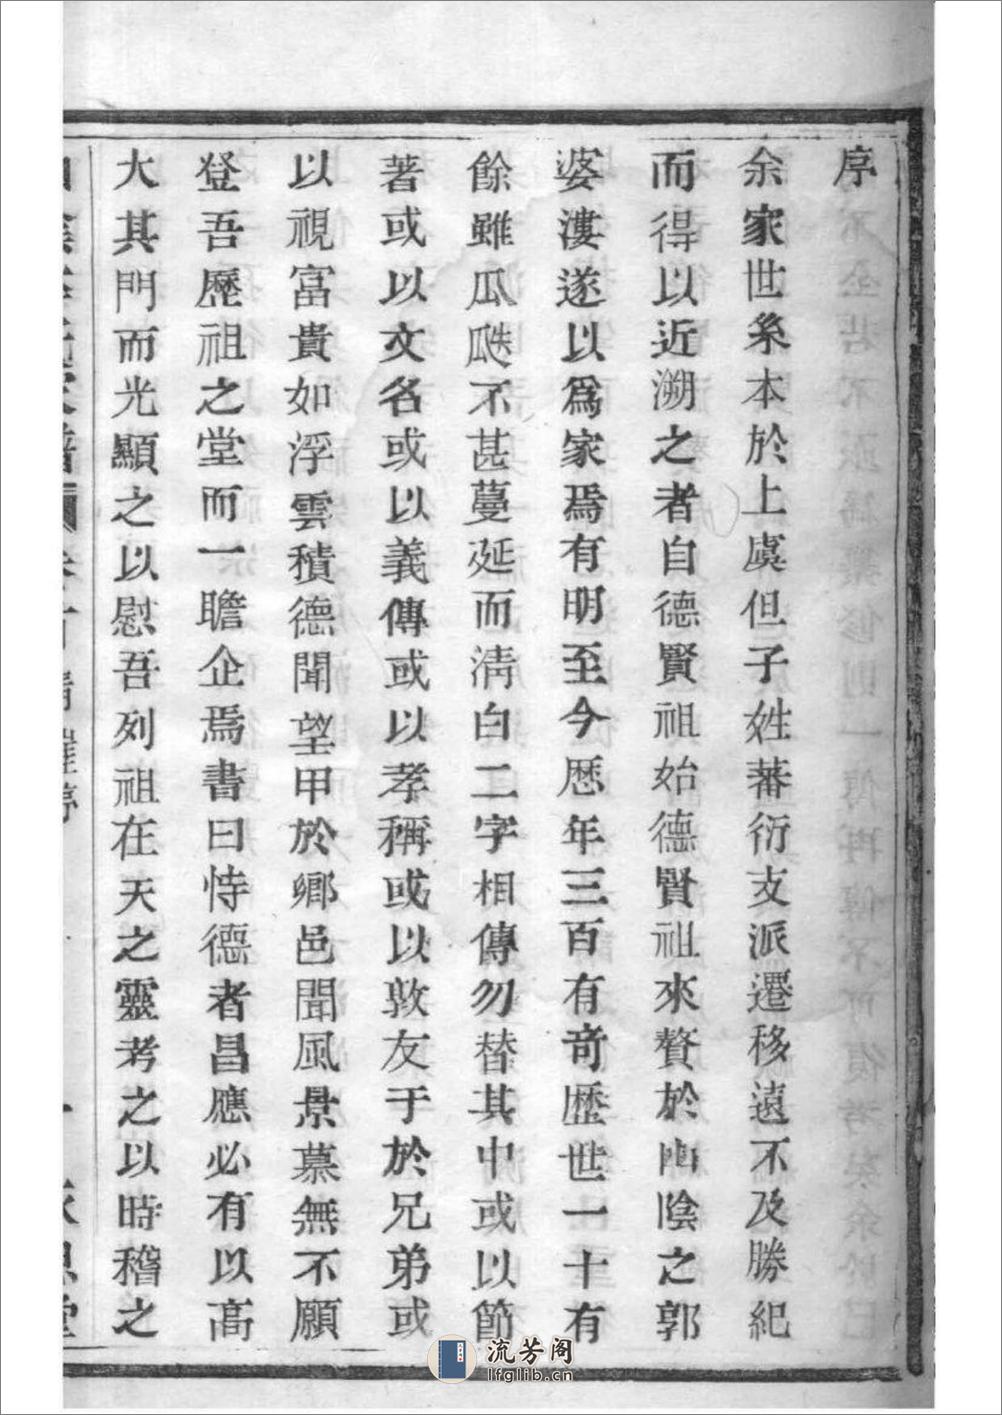 序
余家世系本於上虞但子姓蕃衍支派遷移遠不及勝紀
而得以近溯之者自德賢祖始德賢祖來贅於山陰之郭
婆漊遂以爲家焉有明至今歷年三百有奇歷世一十有
餘雖瓜瓞不甚蔓延而清白二字相傳勿替其中或以節
著或以文名或以義傳或以孝稱或以敦友于於兄弟或
以視富貴如浮雲積德聞望甲於鄉邑聞風景慕無不願
登吾歷祖之堂而一瞻企焉書曰恃德者昌應必有以高
大其門而光顯之以慰吾列祖在天之靈考之以時稽之
流芳阁
lfglib.cn